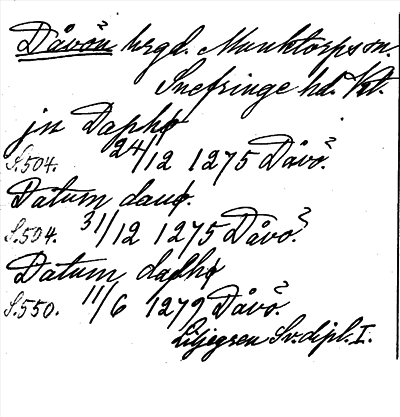 Dåvön hrgd. Munktorps sn.
Snefringe hd. Vtl.
jn Daphø
S. 504. 24/12 1275 Dåvö.
Datum dauø.
S. 504. 31/12 1275 Dåvö.
Datum daphø
S. 550. 11/6 1279 Dåvö.
Liljegren Sv. dipl. I.